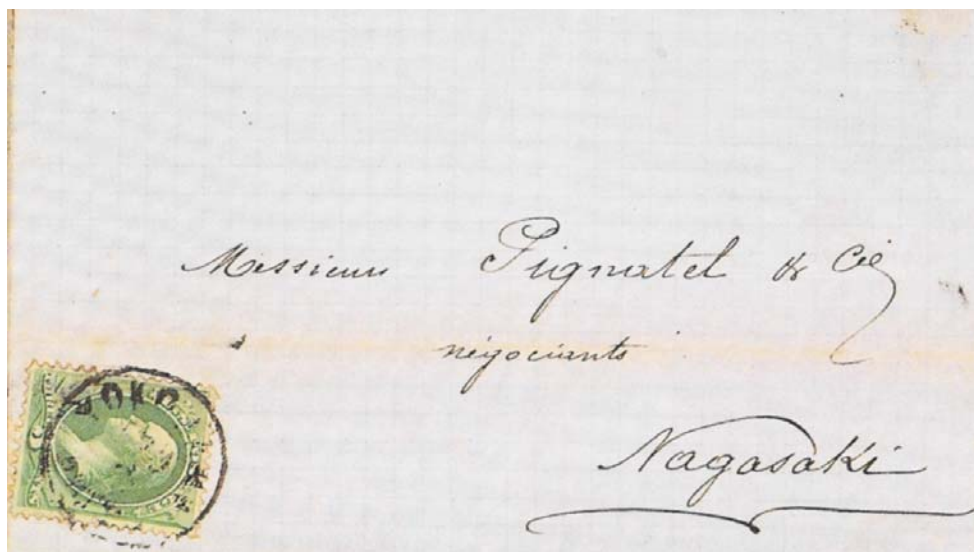 Messieurs Pignatel & Cie
négociants
Nagasaki
YOKO